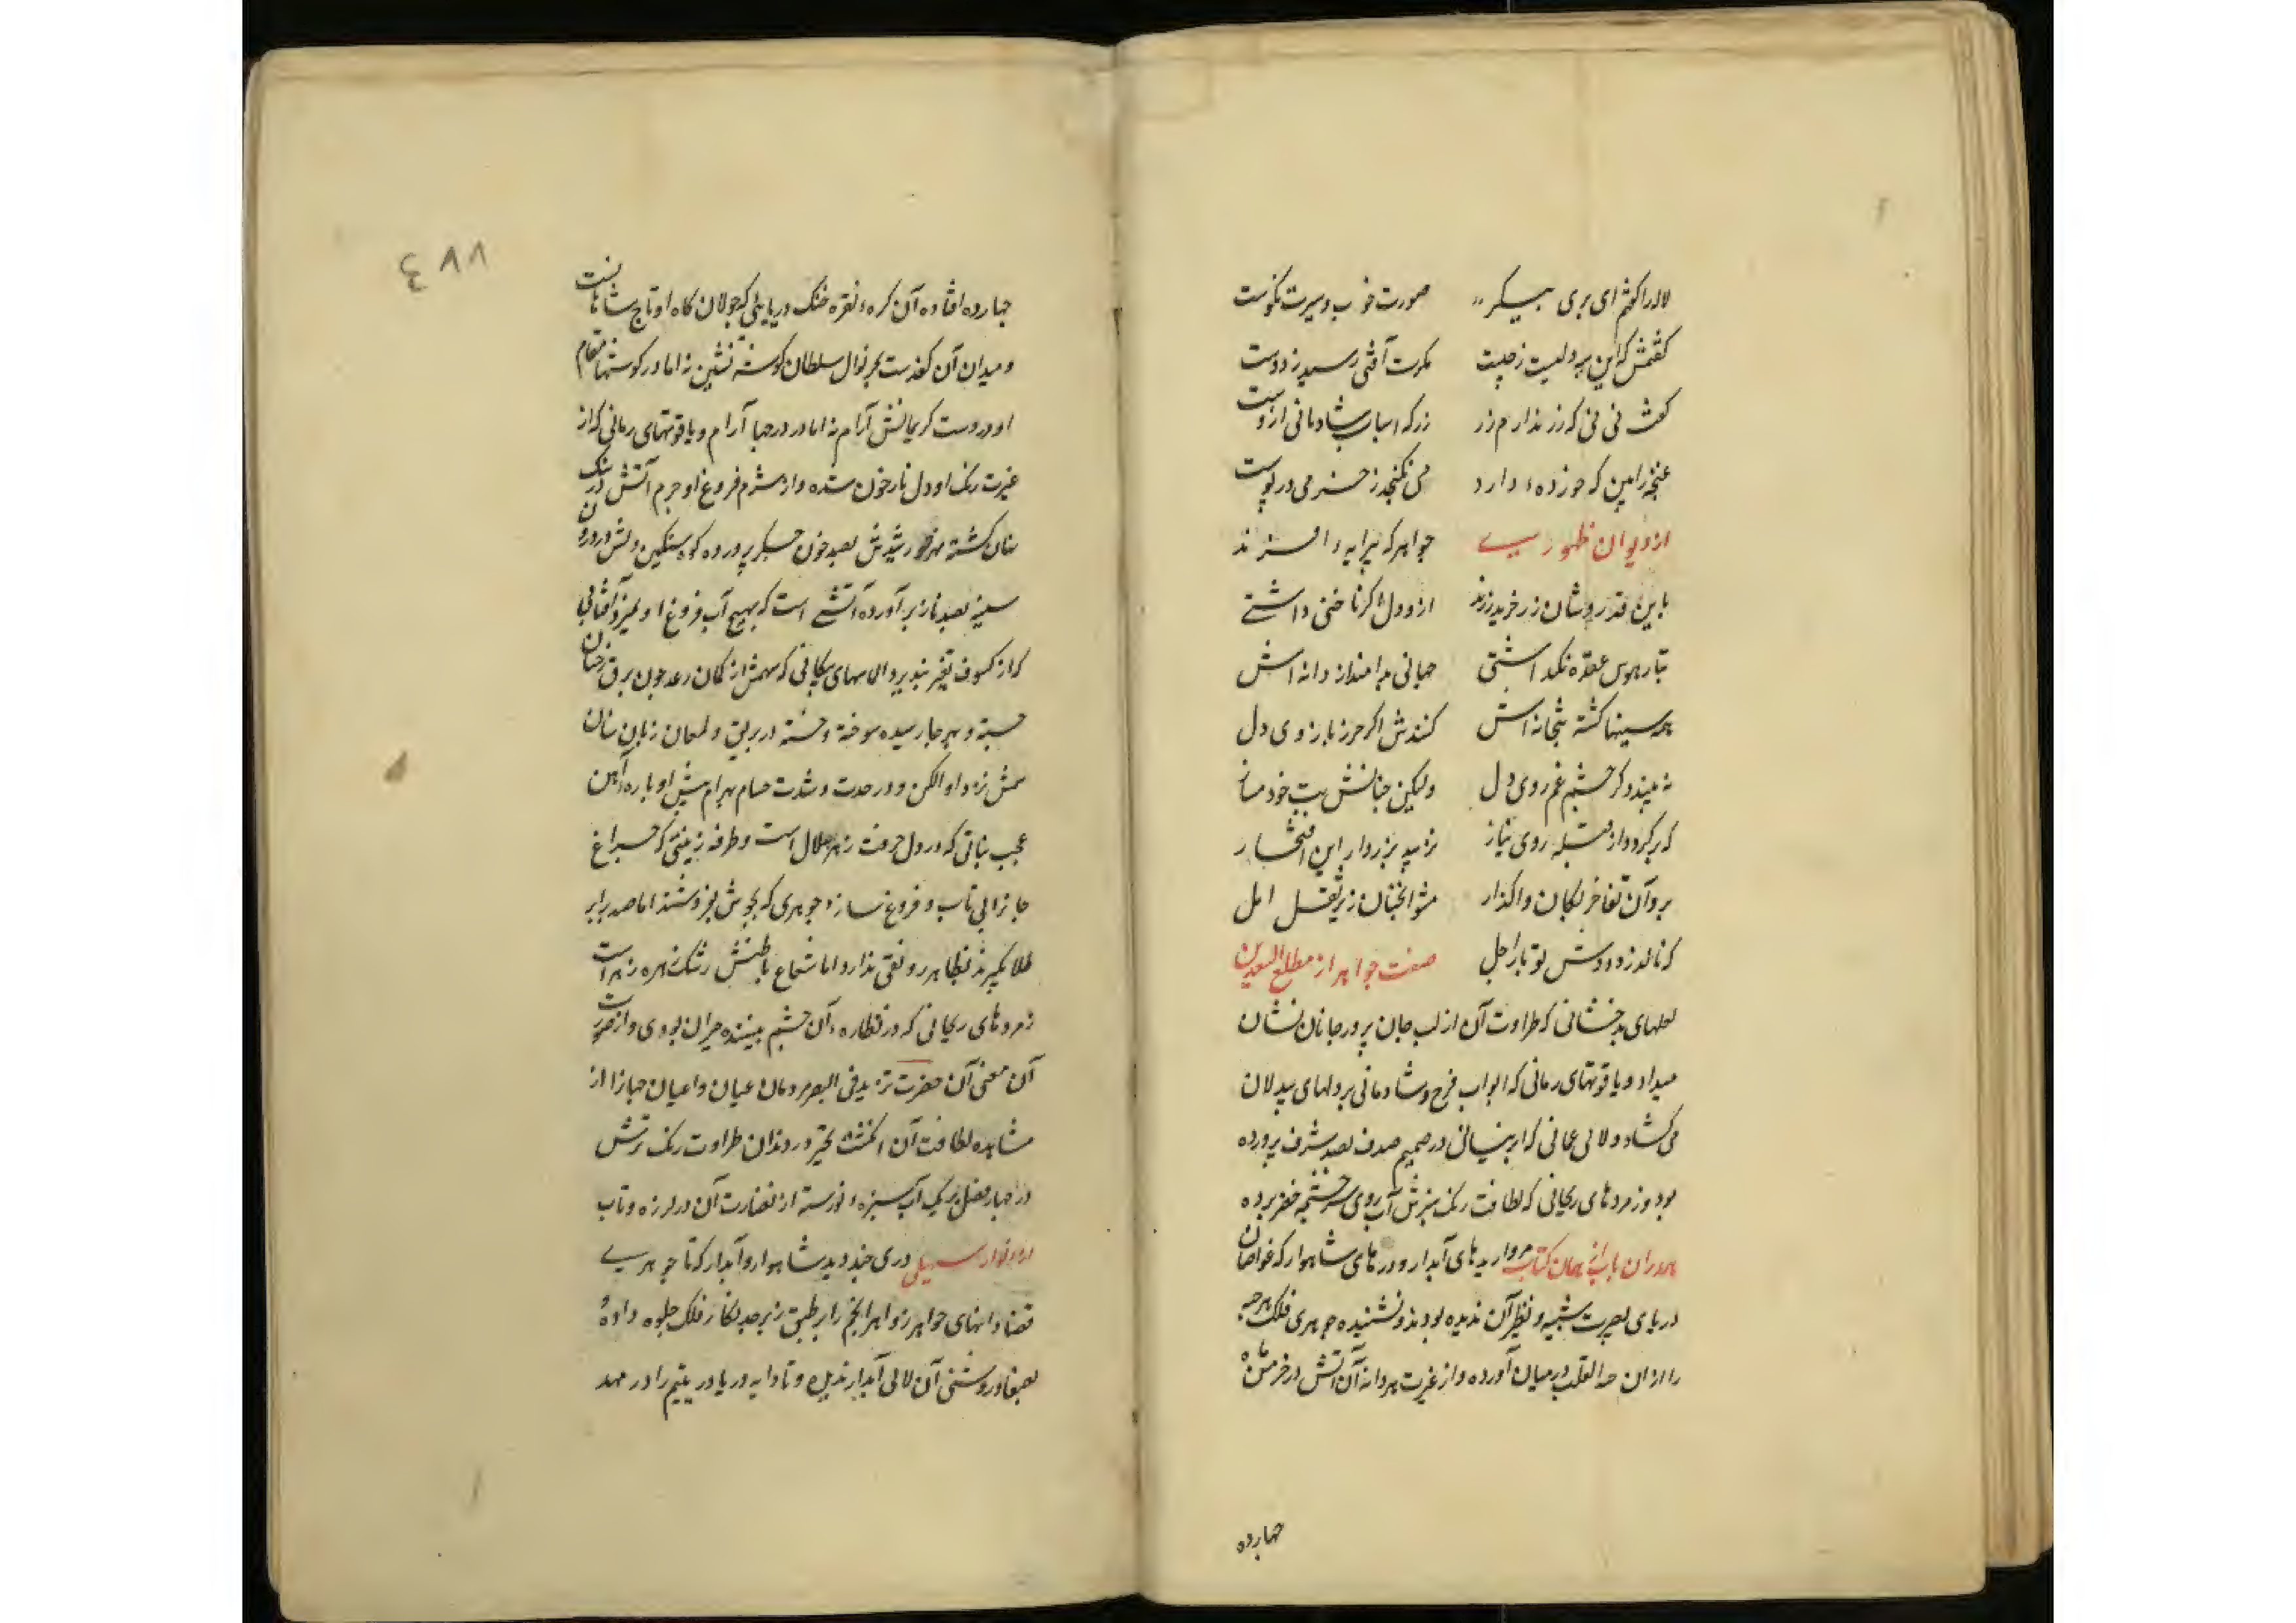 لاله را گفتم ای پری پیکر صورت خوب و سیرت نکوست
گفتمش که این دلیت ز چیست مکرت آفتی رسید ز دوست
گفت نی نی که زر ندارم زر زر که اسباب شادمانی ازوست
غنچه را بین که خورده دارد می نگنجد ز خرمی در پوست
از دیوان ظهوری جواهر که پیرایه افسرند
باین قدر و شان زر خرید زرند ازو دل اگر ناخنی داشتی
بتار هوس عقده نگذاشتی جهانی بدام از دانه اش
همه سینها گشته بتخانه اش کندش اگر حرز بازوی دل
نه بیند دگر چشم غم روی دل ولیکن چنانش بت خود مساز
که برگردد از قبله روی نیاز
برو آن تفاخر بکان واگذار مشو آنچنان زیر ثقل امل
که نالد ز دوشش تو بار اجل صفت جواهر از مطلع السعدین
لعلهای بدخشانی که طراوت آن از لب جان پرور جانان نشان
میداد و یاقوتهای رمانی که ابواب فرح و شادمانی بر دلهای بیدلان
می گشاد و لالی عمانی که ابر نیسانی در صمیم صدف بصد شرف پرورده
بود و زمردهای ریحانی که لطافت رنگ سبزش آب روی سرچشمه خضر برده
همدران باب از همان کتاب مرواریدهای آبدار و درهای شاهوار که غواصان
دریای بصیرت شبیه و نظیر آن ندیده بودند و نشنیده جوهری فلک هر چه
را از آن در میان آورده و از غیرت هر دانه آن آتش در خرمن ماه
چهارده
٤٨٨
چهارده افتاده آن کره نقره خنک دریایی که جولان گاه او تاج شاهانست
و میدان آن کف دست بحر نوال سلطان گوشه نشین نه اما در گوشها مقام
او در دست کریمانش آرام نه اما در درجها آرام و یاقوتهای رمانی که از
غیرت رنگ او دل نار خون شده و از شرم فروغ او جرم آتش در سنگ
نهان گشته خورشیدش بصد خون جگر پرورده کوه سنگین دلش در درون
سینه بصد ناز برآورده آتشی است که بهیچ آب فروغ او نمیرد آفتابی
که از کسوف تغیر نپذیرد الماسهای پیکانی که سهمش از کمان رعد چون برق رخشان
جسته و بهر جا رسیده سوخته و خسته در بریق و لمعان زبان سنان
پیش او الکن و در حدت و شدت حسام بهرام پیش او پاره آهن
عجب نباتی که در دل حرفت زهر هلال است و طرفه زینتی که چراغ
جانرا بی تاب و فروغ سازد جوهری که بجوش بفروشند اما صد برابر
طلا بگیرند بظاهر رونقی ندارد اما شعاع باطنش رشک زهره زهراست
زمردهای ریحانی که در نظاره آن چشم بیننده حیران بودی و از خضرت
آن معنی آن خضرت تزید فی البصر مردمان عیان و اعیان جهانرا از
مشاهده لطافت آن انگشت تحیر در دندان طراوت رنگ ترش
در چهار فصل بر یک آب سبزه نورسته از نضارت آن در لرزه و تاب
از انوار سهیلی دری چند دید شاهوار و آبدار که تا جوهری
قضا دانهای جواهر زواهر انجم را بر طبق زبرجد نگار فلک جلوه داده
بصفا و روشنی آن لالی آبدار ندیده و تا دایه دریا در یتیم را در مهد